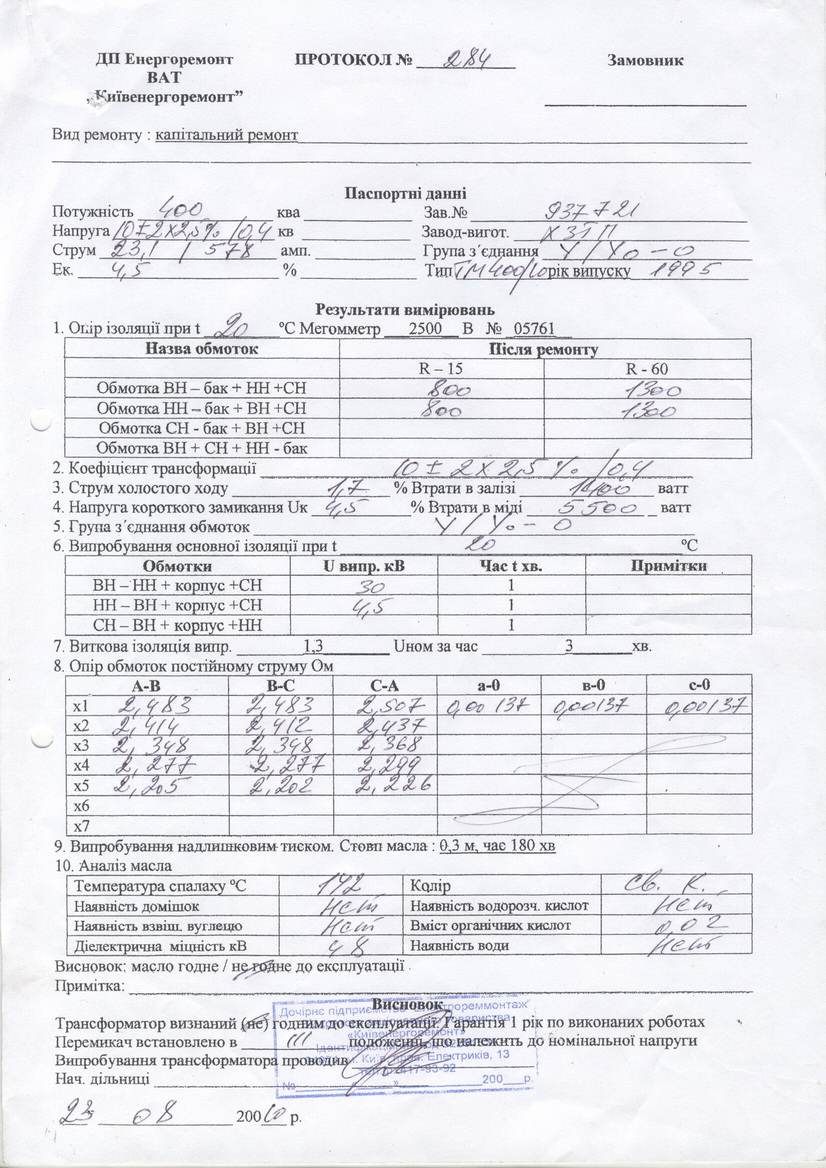 ДП Енергоремонт ПРОТОКОЛ № 284 Замовник
ВАТ
„Київенергоремонт”
Вид ремонту : капітальний ремонт
Паспортні данні
Потужність 400 ква Зав.№ 937721
Напруга 10±2х2,5% /0,4 кв Завод-вигот. ХЗТП
Струм 23,1 / 578 амп. Група з´єднання У/У0 – 0
Ек. 4,5 % Тип ТМ 400/10 рік випуску 1995
Результати вимірювань
1. Опір ізоляції при t 20 ºС Мегомметр 2500 В № 05761
Назва обмоток Після ремонту
R – 15 R - 60
Обмотка ВН – бак + НН +СН 800 1300
Обмотка НН – бак + ВН +СН 800 1300
Обмотка СН - бак + ВН +СН
Обмотка ВН + СН + НН - бак
2. Коефіцієнт трансформації 10 ± 2 х 2,5 % /0,4
3. Струм холостого ходу 1,7 % Втрати в залізі ватт
4. Напруга короткого замикання Uк 4,5 % Втрати в міді 5500 ватт
5. Група з´єднання обмоток У/У0 – 0
6. Випробування основної ізоляції при t 20 ºС
Обмотки U випр. кВ Час t хв. Примітки
ВН – НН + корпус +СН 30 1
НН – ВН + корпус +СН 4,5 1
СН – ВН + корпус +НН 1
7. Виткова ізоляція випр. 1,3 Uном за час 3 хв.
8. Опір обмоток постійному струму Ом
А-В В-С С-А а-0 в-0 с-0
х1 2,483 2,483 2,507 0,00137 0,00137 0,00137
х2 2,414 2,412 2,437
х3 2,348 2,348 2,368
х4 2,277 2,277 2,299
х5 2,205 2,202 2,226
х6
х7
9. Випробування надлишковим тиском. Стовп масла : 0,3 м, час 180 хв
10. Аналіз масла
Температура спалаху ºС 142 Колір св. к.
Наявність домішок нет Наявність водорозч. кислот нет
Наявність взвіш. вуглецю нет Вміст органічних кислот 0,02
Діелектрична міцність кВ 48 Наявність води нет
Висновок: масло годне / не годне до експлуатації
Примітка:
Висновок
Дочірнє підприємство
Трансформатор визнаний (не) годним до експлуатації. Гарантія 1 рік по виконаних роботах
«Київенергоремонт»
Перемикач встановлено в III положенні, що належить до номінальної напруги
Випробування трансформатора проводив
Електриків, 13
Нач. дільниці
№ « » 200 р.
23 08 2010 р.